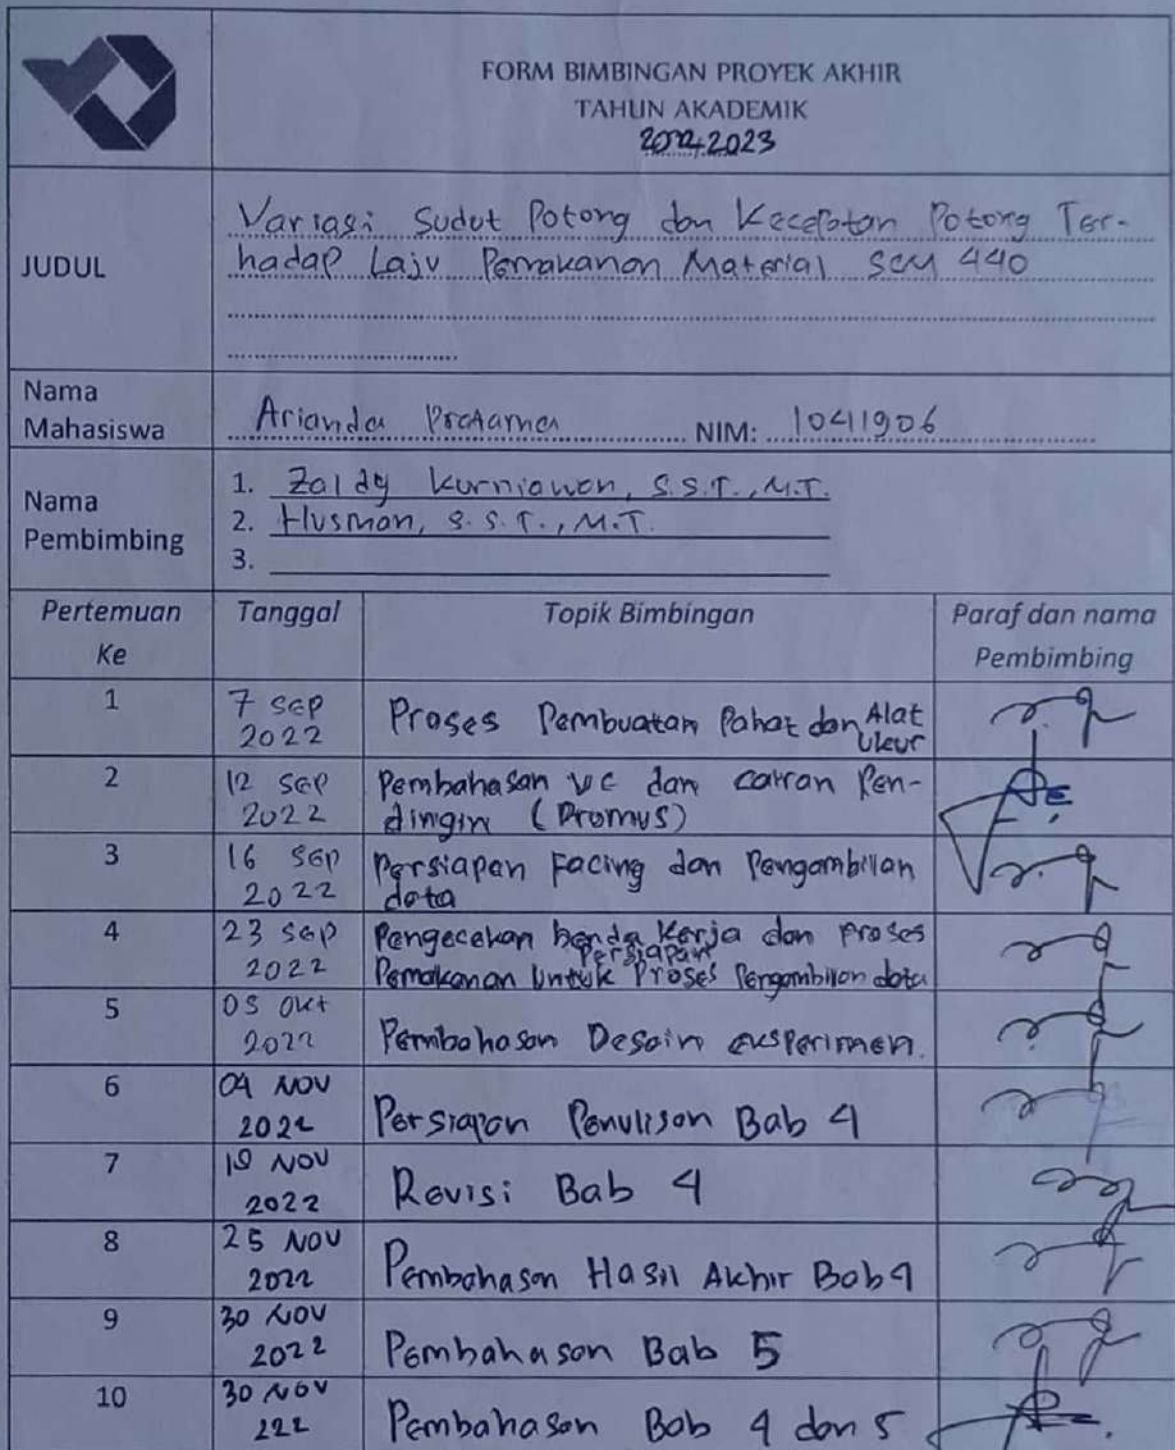 FORM BIMBINGAN PROYEK AKHIR
TAHUN AKADEMIK
2022/2023
JUDUL
Variasi Sudut Potong dan Kecepatan Potong Ter-
hadap Laju Pemakanan Material SCM 440
Nama
Mahasiswa
Arianda Pratama NIM: 1041906
Nama
Pembimbing
1. Zaldy Kurniawan, S.S.T., M.T.
2. Husman, S.S.T., M.T.
3.
Pertemuan
Ke
Tanggal
Topik Bimbingan
Paraf dan nama
Pembimbing
1
7 Sep
2022
Proses Pembuatan Pahat dan Alat
Ukur
2
12 Sep
2022
Pembahasan VC dan cairan Pen-
dingin (Dromus)
3
16 Sep
2022
Persiapan Facing dan Pengambilan
data
4
23 Sep
2022
Pengecekan benda kerja dan Proses
Persiapan
Pemakanan Untuk Proses Pengambilan data
5
05 Okt
2022
Pembahasan Desain eksperimen.
6
04 NOV
2022
Persiapan Penulisan Bab 4
7
NOV
2022
Revisi Bab 4
8
25 NOV
2022
Pembahasan Hasil Akhir Bab 4
9
30 NOV
2022
Pembahasan Bab 5
10
30 NOV
222
Pembahasan Bab 4 dan 5